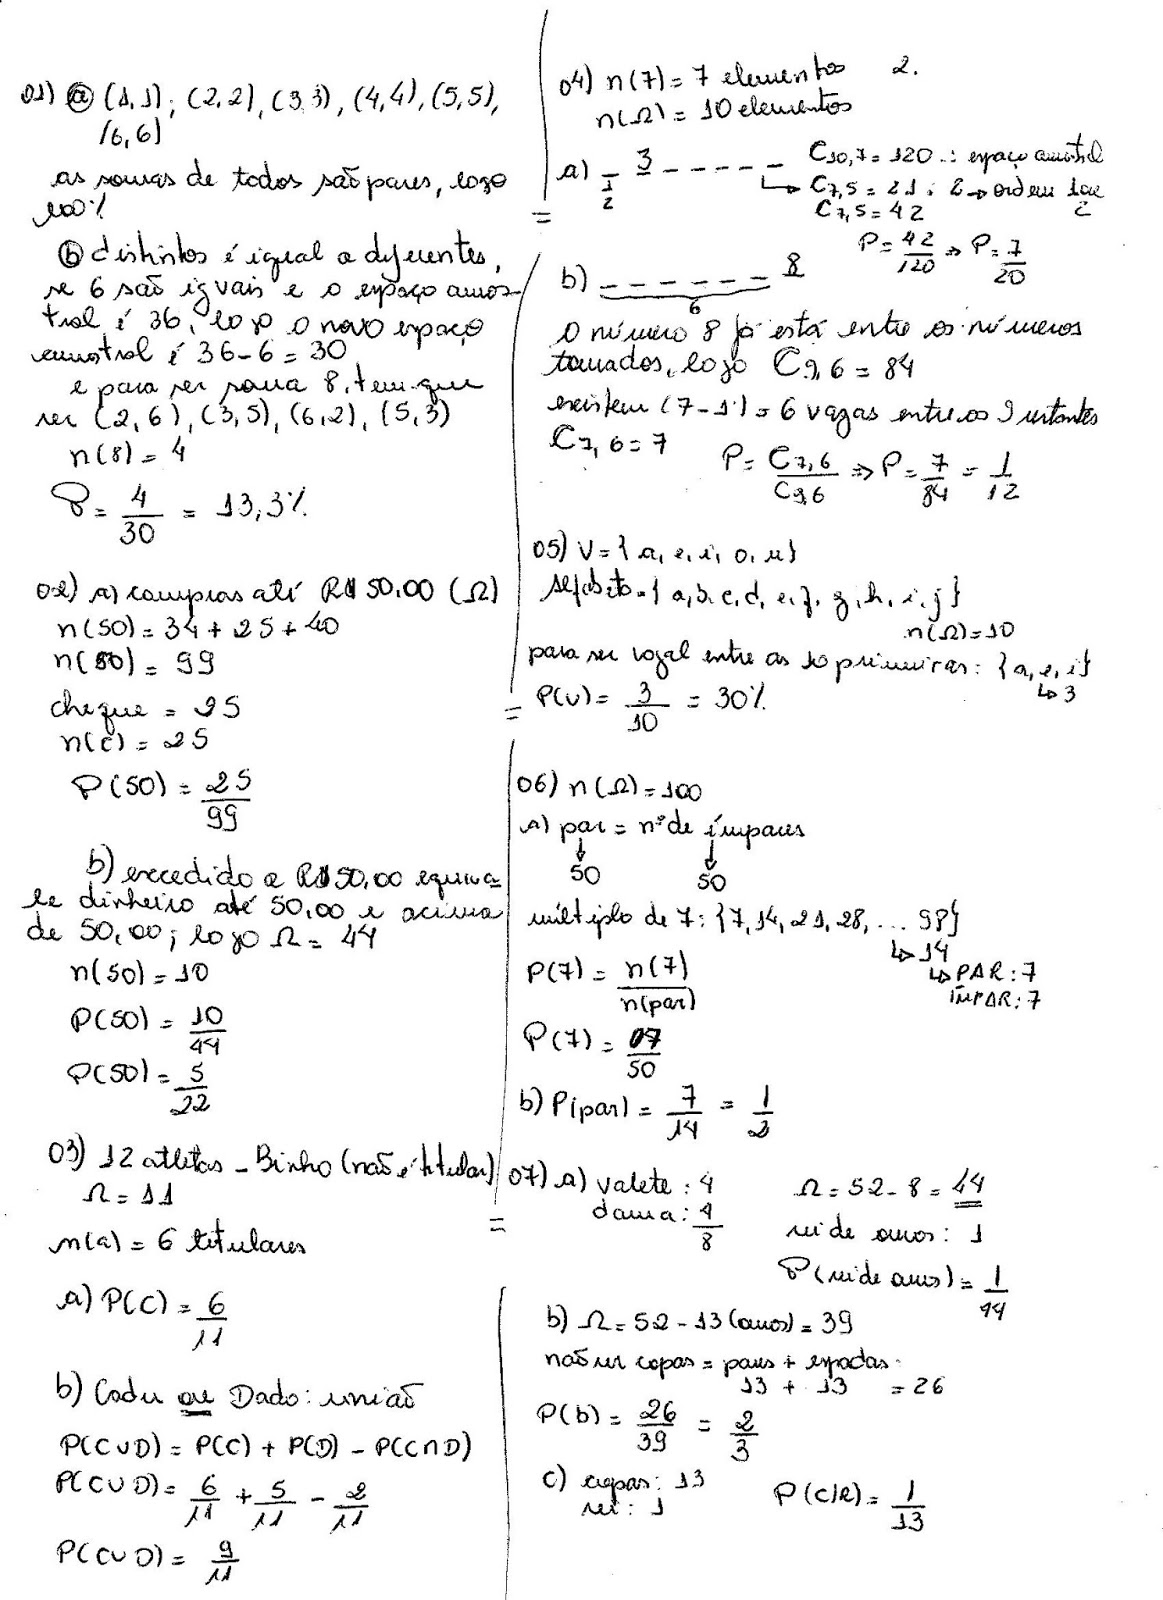 01) a) (1,1); (2,2), (3,3), (4,4), (5,5),
(6,6)
as somas de todos são pares, logo
100%
b) distintos é igual a diferentes,
se 6 são iguais e o espaço amos-
tral é 36, logo o novo espaço
amostral é 36-6=30
e para ser soma 8, tem que
ser (2,6), (3,5), (6,2), (5,3)
n(8) = 4
P = 4/30 = 13,3%
02) a) compras até R$ 50,00 (Ω)
n(50) = 34 + 25 + 40
n(50) = 99
cheque = 25
n(c) = 25
P(50) = 25/99
b) excedido a R$50,00 equiva-
le dinheiro até 50,00 e acima
de 50,00; logo Ω = 44
n(50) = 10
P(50) = 10/44
P(50) = 5/22
03) 12 atletas - Binho (não é titular)
Ω = 11
n(a) = 6 titulares
a) P(C) = 6/11
b) Cadu ou Dado: união
P(C∪D) = P(C) + P(D) - P(C∩D)
P(C∪D) = 6/11 + 5/11 - 2/11
P(C∪D) = 9/11
04) n(7) = 7 elementos 2.
n(Ω) = 10 elementos
a) _ 3 - - - - - C10,7 = 120 ∴ espaço amostral
1 2 ↳ C7,5 = 21 . 2 → ordem 1 ou 2
C7,5 = 42
P = 42/120 ⇒ P = 7/20
b) _ _ _ _ _ _ 8
6
O número 8 já está entre os números
tomados, logo C9,6 = 84
existem (7-1) = 6 vagas entre os 9 restantes
C7,6 = 7 P = C7,6/C9,6 ⇒ P = 7/84 = 1/12
05) V = {a, e, i, o, u}
alfabeto = {a, b, c, d, e, f, g, h, i, j}
n(Ω) = 10
para ser vogal entre as 10 primeiras: {a, e, i}
↳ 3
P(V) = 3/10 = 30%
06) n(Ω) = 100
a) par = nº de ímpares
↓ ↓
50 50
múltiplo de 7: {7, 14, 21, 28, ... 98}
↳ 14
↳ PAR: 7
ÍMPAR: 7
P(7) = n(7)/n(par)
P(7) = 07/50
b) P(par) = 7/14 = 1/2
07) a) valete: 4 Ω = 52 - 8 = 44
dama: 4
8
rei de ouros: 1
P(rei de ouros) = 1/44
b) Ω = 52 - 13 (ouros) = 39
não ser copas = paus + espadas:
13 + 13 = 26
P(b) = 26/39 = 2/3
c) copas: 13
rei: 1 P(C/R) = 1/13